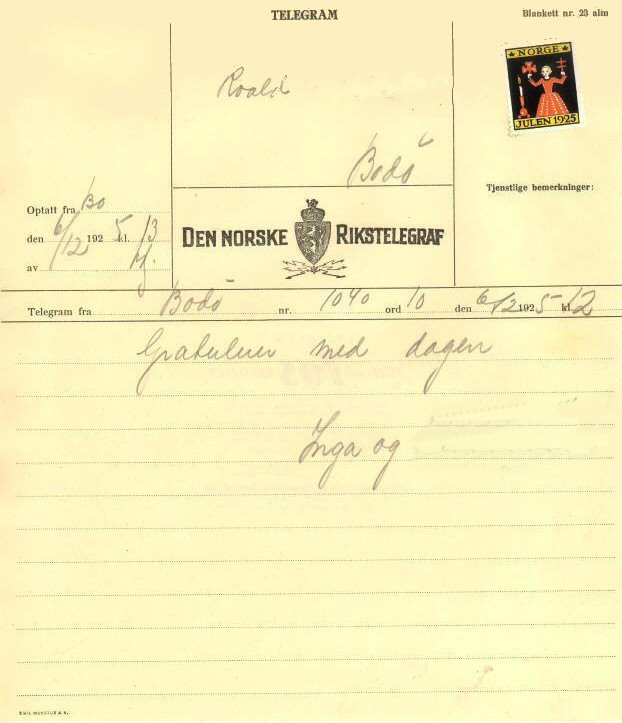 TELEGRAM
Blankett nr. 23 alm
NORGE
JULEN 1925
Roald
Bodø
Tjenstlige bemerkninger:
Optatt fra Bo
den 6/12 1925 kl. 13
av
DEN NORSKE RIKSTELEGRAF
Telegram fra Bodø nr. 1040 ord 10 den 6/12 1925 kl. 12
Gratulerer med dagen
Inga og